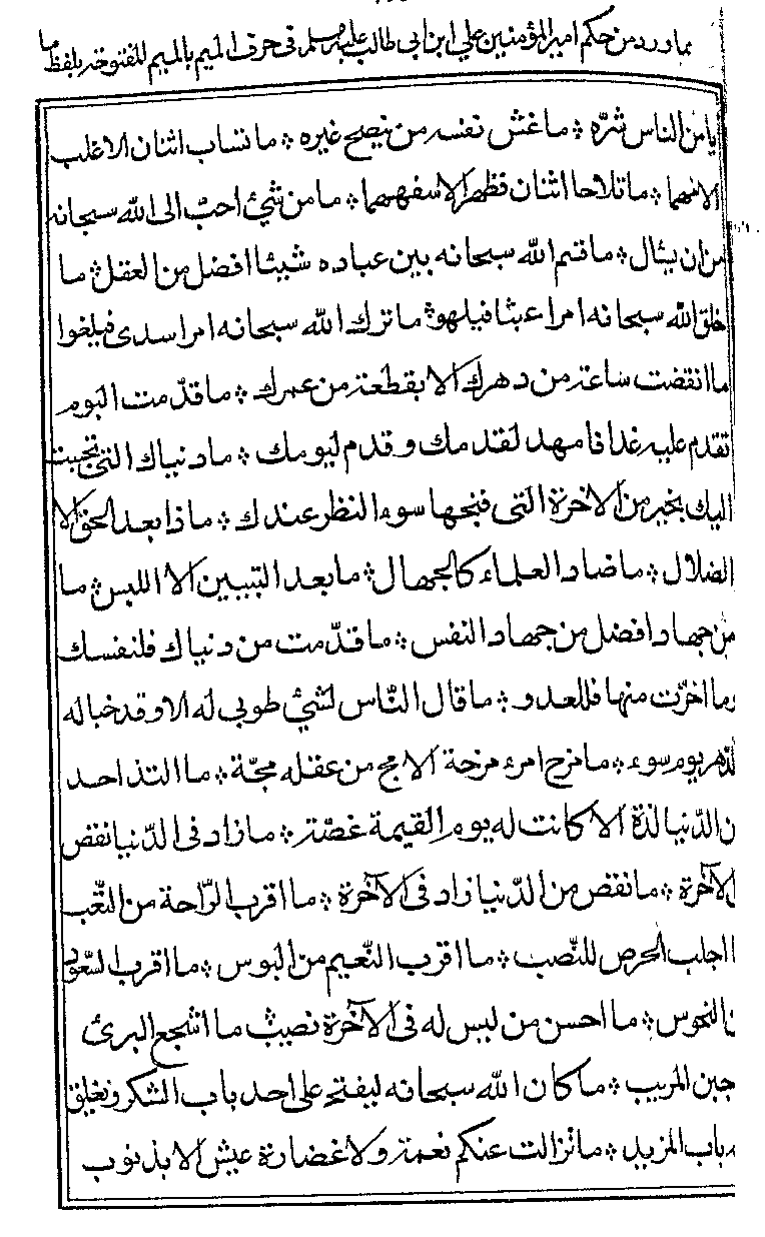 مما ورد من حكم امير المؤمنين علي ابن ابي طالب عليه في حرف الميم بالميم المفتوحة بلفظ ما
من الناس شرّه ؞ ما غش نفسه من ينصح غيره ؞ ما تساب اثنان الا غلب
ما تلاحا اثنان فظهر الا سفههما ؞ ما من شئ احبّ الى الله سبحانه
من ان يسال ؞ ما قسم الله سبحانه بين عباده شيئا افضل من العقل ؞ ما
خلق الله سبحانه امرا عبثا فيلهو ؞ ما ترك الله سبحانه امرا سدى فيلغوا
ما انقضت ساعة من دهرك الا بقطعة من عمرك ؞ ما قدّمت اليوم
تقدم عليه غدا فامهد لقدمك وقدم ليومك ؞ ما دنياك التي تحببت
اليك بخير من الاخرة التي قبحها سوء النظر عندك ؞ ماذا بعد الحق الا
الضلال ؞ ما ضاد العلماء كالجهال ؞ ما بعد التبيين الا اللبس ؞ ما
من جهاد افضل من جهاد النفس ؞ ما قدّمت من دنياك فلنفسك
وما اخّرت منها فللعدو ؞ ما قال النّاس لشئ طوبى له الا وقد خبا له
الدهر يوم سوء ؞ ما مزح امرء مزحة الا مج من عقله مجّة ؞ ما التذ احد
من الدّنيا لذة الا كانت له يوم القيمة غصّة ؞ ما زاد في الدّنيا نقص
في الآخرة ؞ ما نقص من الدّنيا زاد في الآخرة ؞ ما اقرب الرّاحة من التّعب
ما اجلب الحرص للنّصب ؞ ما اقرب النّعيم من البوس ؞ ما اقرب السّعود
من النحوس ؞ ما احسن من ليس له في الآخرة نصيب ؞ ما اشجع البرئ
واجبن المريب ؞ ما كان الله سبحانه ليفتح على احد باب الشكر ويغلق
عنه باب المزيد ؞ ما زالت عنكم نعمة ولا غضارة عيش الا بذنوب